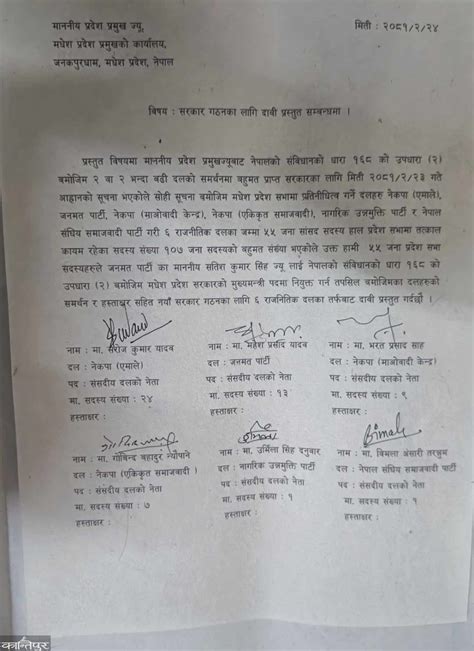 माननीय प्रदेश प्रमुख ज्यू,
मिती : २०८१/२/२४
मधेश प्रदेश प्रमुखको कार्यालय,
जनकपुरधाम, मधेश प्रदेश, नेपाल
विषय : सरकार गठनका लागि दाबी प्रस्तुत सम्बन्धमा ।
प्रस्तुत विषयमा माननीय प्रदेश प्रमुखज्यूबाट नेपालको संविधानको धारा १६८ को उपधारा (२)
बमोजिम २ वा २ भन्दा बढी दलको समर्थनमा बहुमत प्राप्त सरकारका लागि मिति २०८१/२/२३ गते
आह्वानको सूचना भएकोले सोही सूचना बमोजिम मधेश प्रदेश सभामा प्रतिनिधित्व गर्ने दलहरु नेकपा (एमाले),
जनमत पार्टी, नेकपा (माओवादी केन्द्र), नेकपा (एकिकृत समाजवादी), नागरिक उन्नमुक्ति पार्टी र नेपाल
संघिय समाजवादी पार्टी गरी ६ राजनितिक दलका जम्मा ५५ जना सांसद सदस्य हाल प्रदेश सभामा तत्काल
कायम रहेका सदस्य संख्या १०७ जना सदस्यको बहुमत संख्या भएकोले उक्त हामी ५५ जना प्रदेश सभा
सदस्यहरुले जनमत पार्टी का माननीय सतिश कुमार सिंह ज्यू लाई नेपालको संविधानको धारा १६८ को
उपधारा (२) बमोजिम मधेश प्रदेश सरकारको मुख्यमन्त्री पदमा नियुक्त गर्न तपसिल बमोजिमका दलहरुको
समर्थन र हस्ताक्षर सहित नयाँ सरकार गठनका लागि ६ राजनितिक दलका तर्फबाट दाबी प्रस्तुत गर्दछौं ।
नाम : मा. सरोज कुमार यादव
नाम : मा. महेश प्रसाद यादव
नाम : मा. भरत प्रसाद साह
दल : नेकपा (एमाले)
दल : जनमत पार्टी
दल : नेकपा (माओवादी केन्द्र)
पद : संसदीय दलको नेता
पद : संसदीय दलको नेता
पद : संसदीय दलको नेता
मा. सदस्य संख्या : २४
मा. सदस्य संख्या : १३
मा. सदस्य संख्या : ९
हस्ताक्षर :
हस्ताक्षर :
हस्ताक्षर :
Bimali
नाम : मा. गोबिन्द बहादुर न्यौपाने
नाम : मा. उर्मिला सिंह दनुवार
नाम : मा. बिमला अंसारी
दल : नेकपा (एकिकृत समाजवादी)
दल : नागरिक उन्नमुक्ति पार्टी
दल : नेपाल संघिय समाजवादी पार्टी
पद : संसदीय दलको नेता
पद : संसदीय दलको नेता
पद : संसदीय दलको नेता
मा. सदस्य संख्या : ७
मा. सदस्य संख्या : १
मा. सदस्य संख्या : १
हस्ताक्षर :
हस्ताक्षर :
हस्ताक्षर :
कान्तिपुर